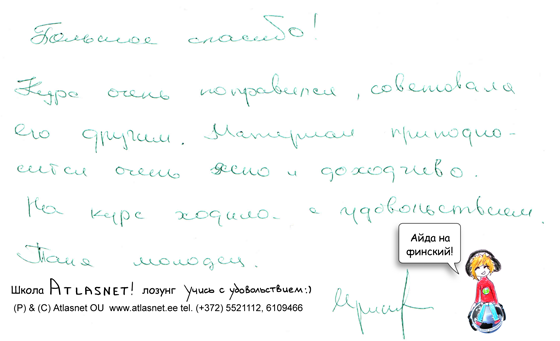 Большое спасибо!
Курс очень понравился, советовала
его другим. Материал приподно-
сится очень ясно и доходчиво.
На курс ходила с удовольствием.
Таня молодец.
Айда на
финский!
Школа ATLASNET! лозунг учись с удовольствием:)
(P) & (C) Atlasnet OU www.atlasnet.ee tel. (+372) 5521112, 6109466